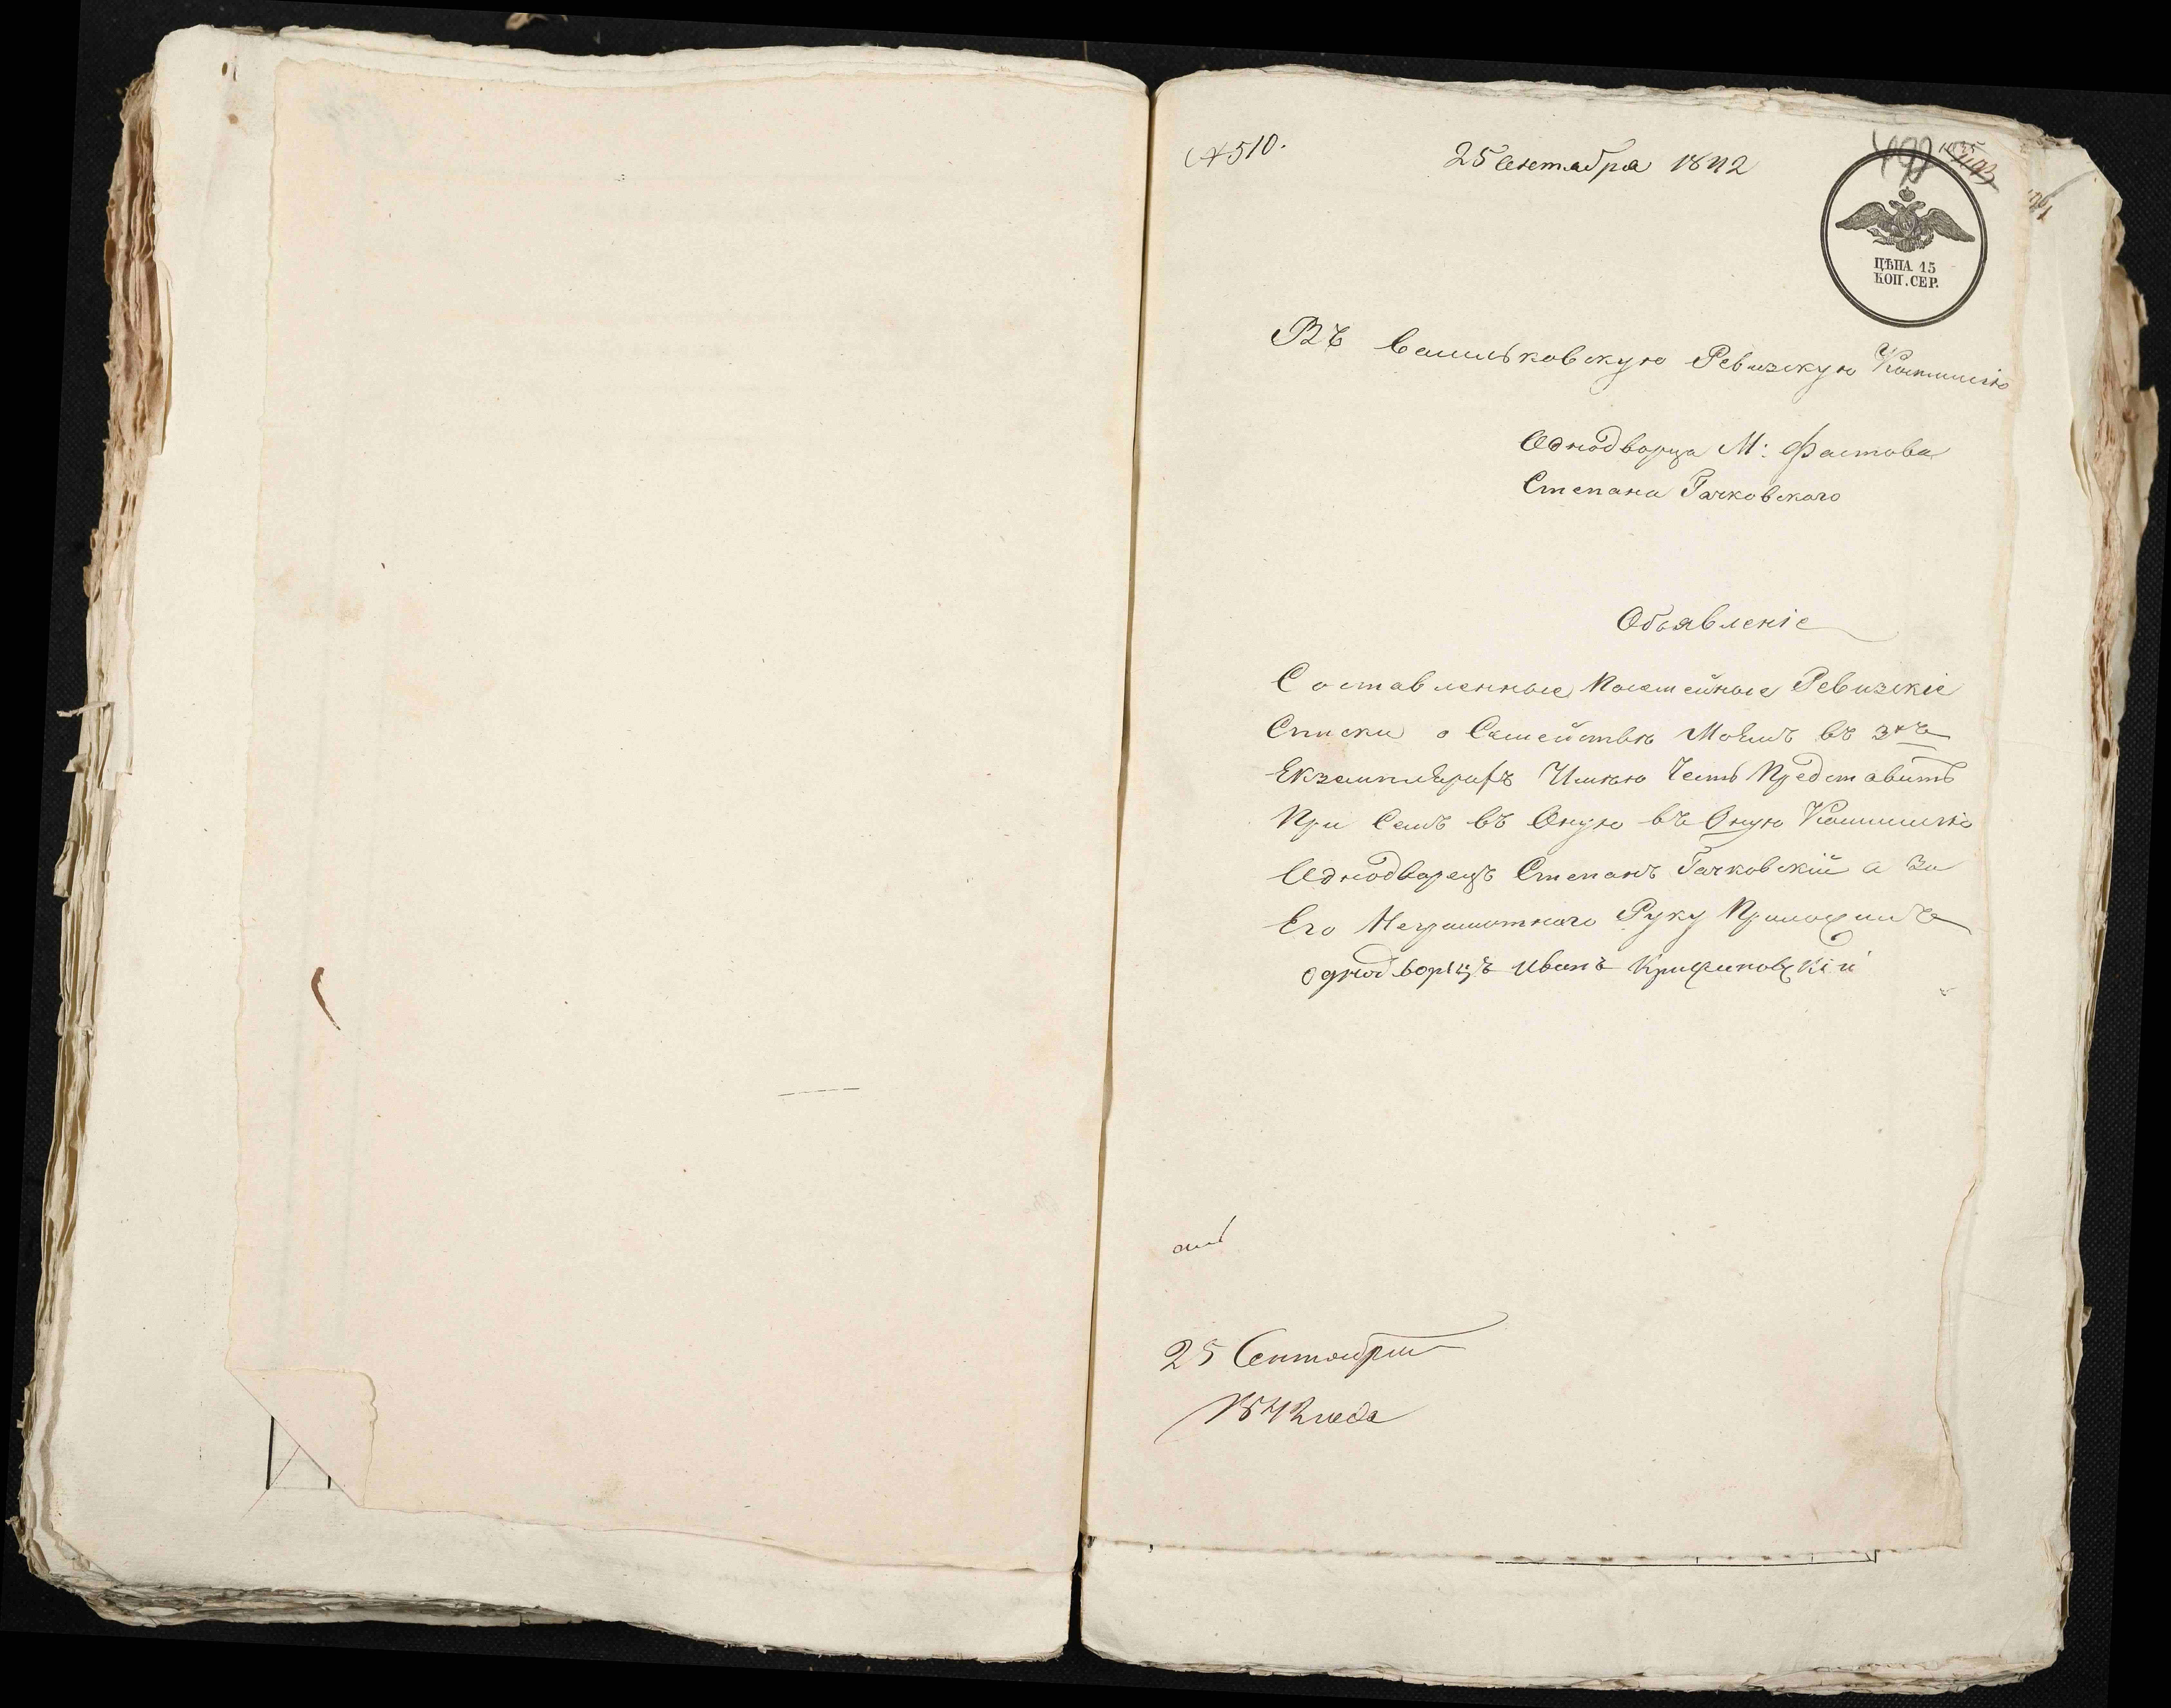 № 510.
25 Сентабра 1842
ЦѢНА 15
КОП. СЕР.
Въ Васильковскую Ревизскую Коммисію
Однодворца М: Фастова
Степана Гачковскаго
Объявленіе
Составленные Посемейные Ревизскіе
Списки о Семействѣ Моемъ въ 3хъ
Екземплярахъ Имѣю Честь Представить
При Семъ въ Оную въ Оную Коммисію
Однодворецъ Степанъ Гачковскій а За
Его Неграмотнаго Руку Приложилъ
однодворецъ Иванъ Крижановскій
25 Сентабра
1842 года